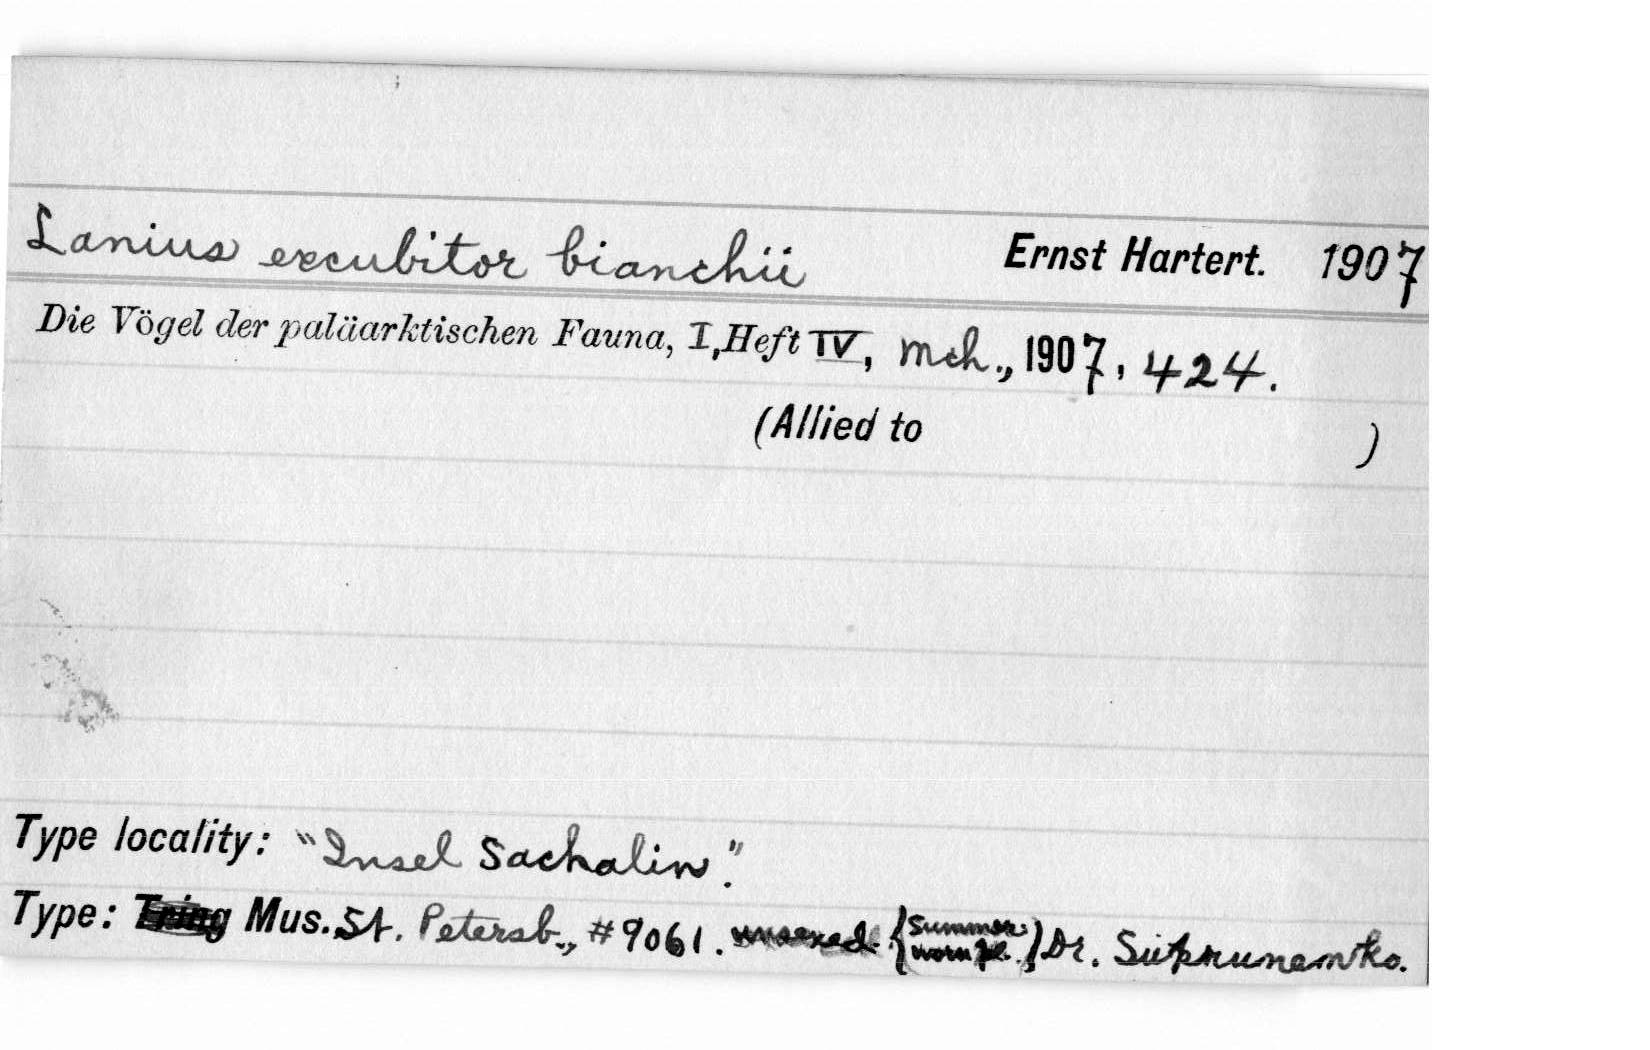 Lanius excubitor bianchii Ernst Hartert. 1907
Die Vögel der paläarktischen Fauna, I, Heft IV, Mch., 1907, 424.
(Allied to )
Type locality: "Insel Sachalin".
Type: Tring Mus. St. Petersb., #9061. unsexed. {Summer worn pl.} Dr. Suprunenko.